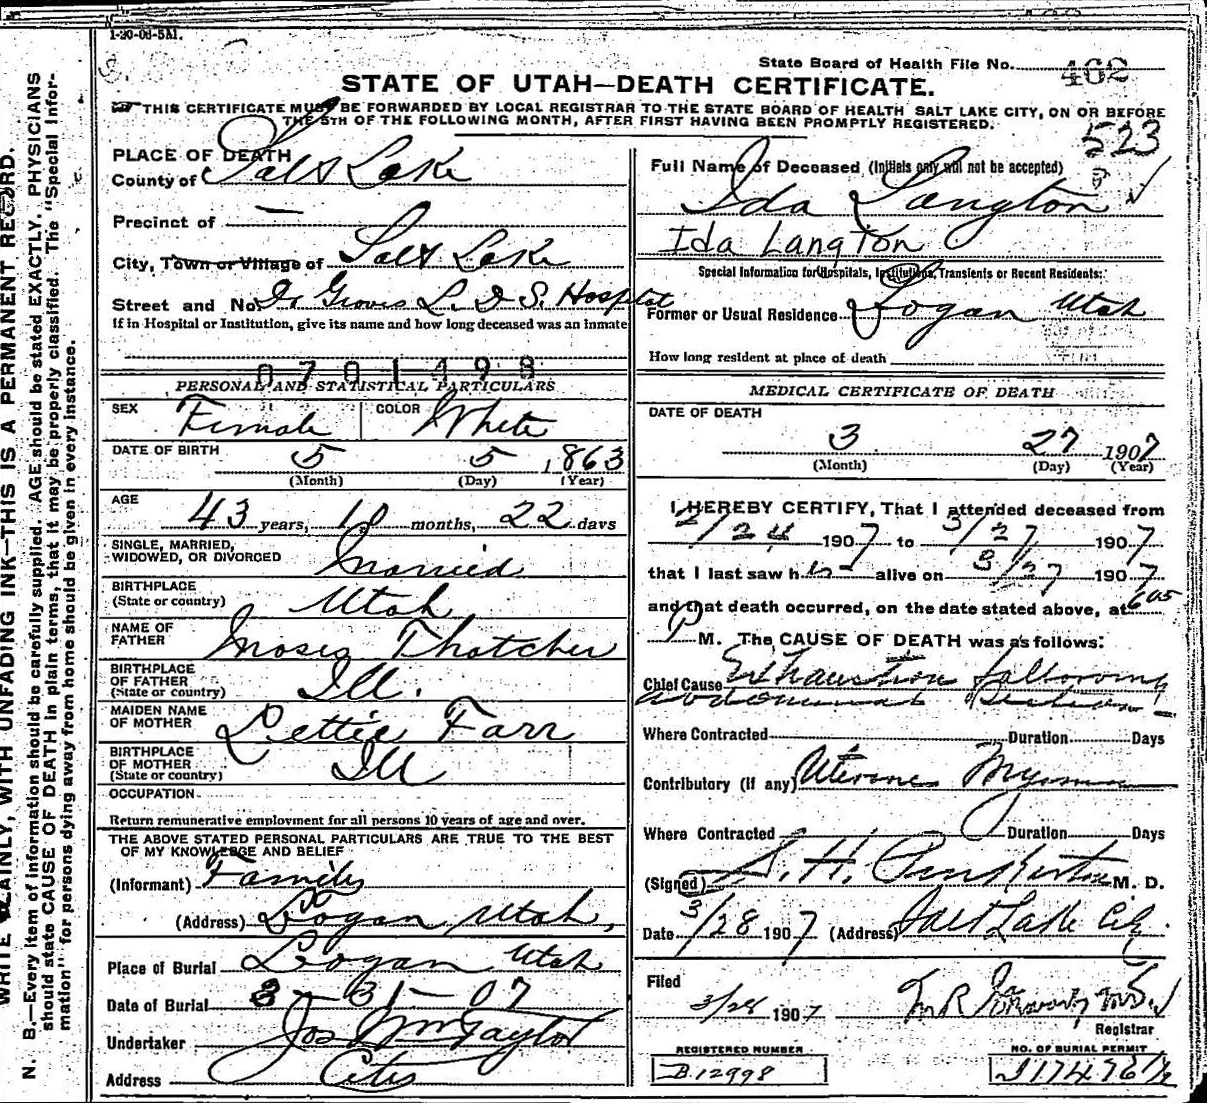 1-20-06-5M.
State Board of Health File No. 462
STATE OF UTAH—DEATH CERTIFICATE.
THIS CERTIFICATE MUST BE FORWARDED BY LOCAL REGISTRAR TO THE STATE BOARD OF HEALTH SALT LAKE CITY, ON OR BEFORE
THE 5TH OF THE FOLLOWING MONTH, AFTER FIRST HAVING BEEN PROMPTLY REGISTERED.
523
PLACE OF DEATH
County of Salt Lake
Precinct of —
City, Town or Village of Salt Lake
Street and No. Dr Groves L. D S. Hospital
If in Hospital or Institution, give its name and how long deceased was an inmate
0701498
PERSONAL AND STATISTICAL PARTICULARS
SEX Female COLOR White
DATE OF BIRTH 5 5 1863
(Month) (Day) (Year)
AGE 43 years, 10 months, 22 days
SINGLE, MARRIED,
WIDOWED, OR DIVORCED Married
BIRTHPLACE
(State or country) Utah
NAME OF
FATHER Moses Thatcher
BIRTHPLACE
OF FATHER
(State or country) Ill.
MAIDEN NAME
OF MOTHER Lettie Farr
BIRTHPLACE
OF MOTHER
(State or country) Ill
OCCUPATION
Return remunerative employment for all persons 10 years of age and over.
THE ABOVE STATED PERSONAL PARTICULARS ARE TRUE TO THE BEST
OF MY KNOWLEDGE AND BELIEF
(Informant) Family
(Address) Logan, Utah,
Place of Burial Logan Utah
Date of Burial 3-31-07
Undertaker Jos Wm Taylor
Address City
Full Name of Deceased (Initials only will not be accepted)
Ida Langton
Ida Langton
Special Information for Hospitals, Institutions, Transients or Recent Residents:
Former or Usual Residence Logan Utah
How long resident at place of death
MEDICAL CERTIFICATE OF DEATH
DATE OF DEATH
3 27 1907
(Month) (Day) (Year)
I HEREBY CERTIFY, That I attended deceased from
2/24 1907 to 3/27 1907
that I last saw her alive on 3/27 1907
and that death occurred, on the date stated above, at 6 05
P M. The CAUSE OF DEATH was as follows:
Chief Cause Exhaustion following
abdominal Section
Where Contracted Duration Days
Contributory (if any) Uterine Myoma
Where Contracted Duration Days
(Signed) S. H. Pinkerton M. D.
Date 3/28 1907 (Address) Salt Lake City.
Filed
3/28 1907
Registrar
REGISTERED NUMBER
B. 12998
NO. OF BURIAL PERMIT
WRITE PLAINLY, WITH UNFADING INK—THIS IS A PERMANENT RECORD.
N. B.—Every item of information should be carefully supplied. AGE should be stated EXACTLY. PHYSICIANS
should state CAUSE OF DEATH in plain terms, that it may be properly classified. The "Special Infor-
mation" for persons dying away from home should be given in every instance.